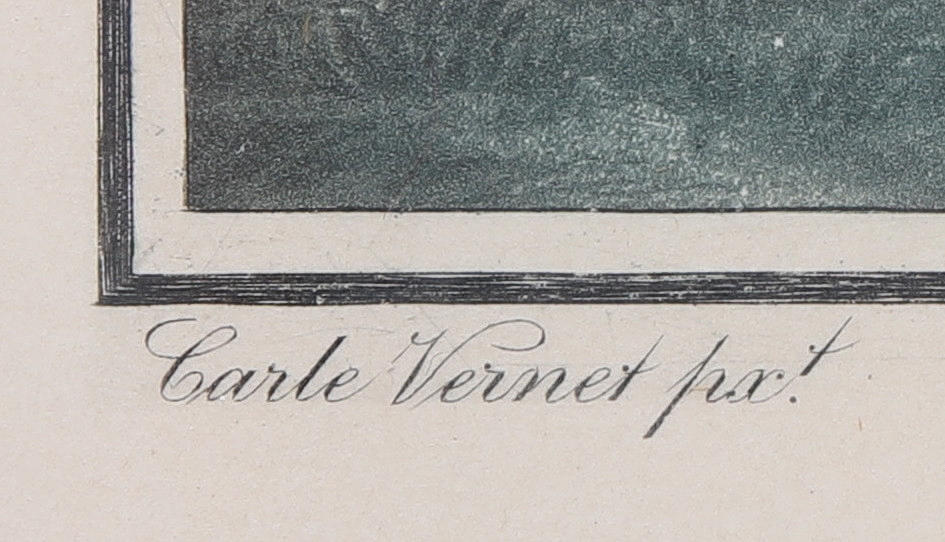 Carle Vernet pxt.